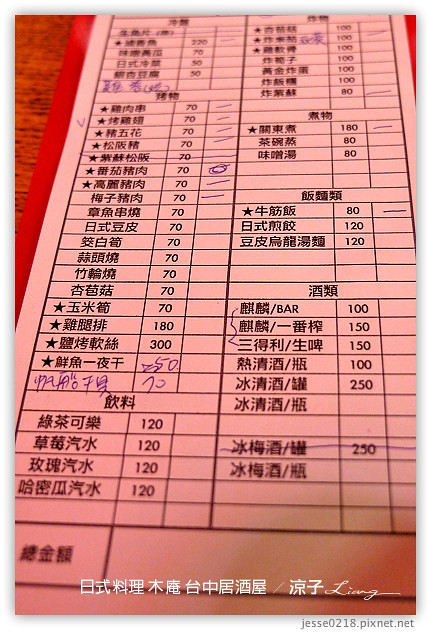 冷盤
生魚片(中)
★滷香魚 220 一
味噌黃瓜 70
日式冷菜 50
銀杏豆腐 50
烤物
★雞肉串 70 一
★烤雞翅 70 一
★豬五花 70 一
★松阪豬 70 一
★紫蘇松阪 70
★番茄豬肉 70
★高麗豬肉 70 一
梅子豬肉 70 一
章魚串燒 70
日式豆皮 70
筊白筍 70
蒜頭燒 70
竹輪燒 70
杏苞菇 70
★玉米筍 70
★雞腿排 180
★鹽烤軟絲 300
★鮮魚一夜干 250
帆船干貝 70
飲料
綠茶可樂 120
草莓汽水 120
玫瑰汽水 120
哈密瓜汽水 120
總金額
炸物
★杏苞菇 100
★炸米糕 100
★雞軟骨 100
炸筍子 100
黃金炸蛋 100
炸飯糰 80
炸紫蘇 80 一
煮物
★關東煮 180 一
茶碗蒸 80
味噌湯 80
飯麵類
★牛筋飯 80 一
日式煎餃 120
豆皮烏龍湯麵 120
酒類
麒麟/BAR 100
麒麟/一番榨 150
三得利/生啤 150
熱清酒/瓶 100
冰清酒/罐 250
冰清酒/瓶
冰梅酒/罐 250
冰梅酒/瓶
日式料理 木庵 台中居酒屋 / 涼子 Liang
jesse0218.pixnet.net